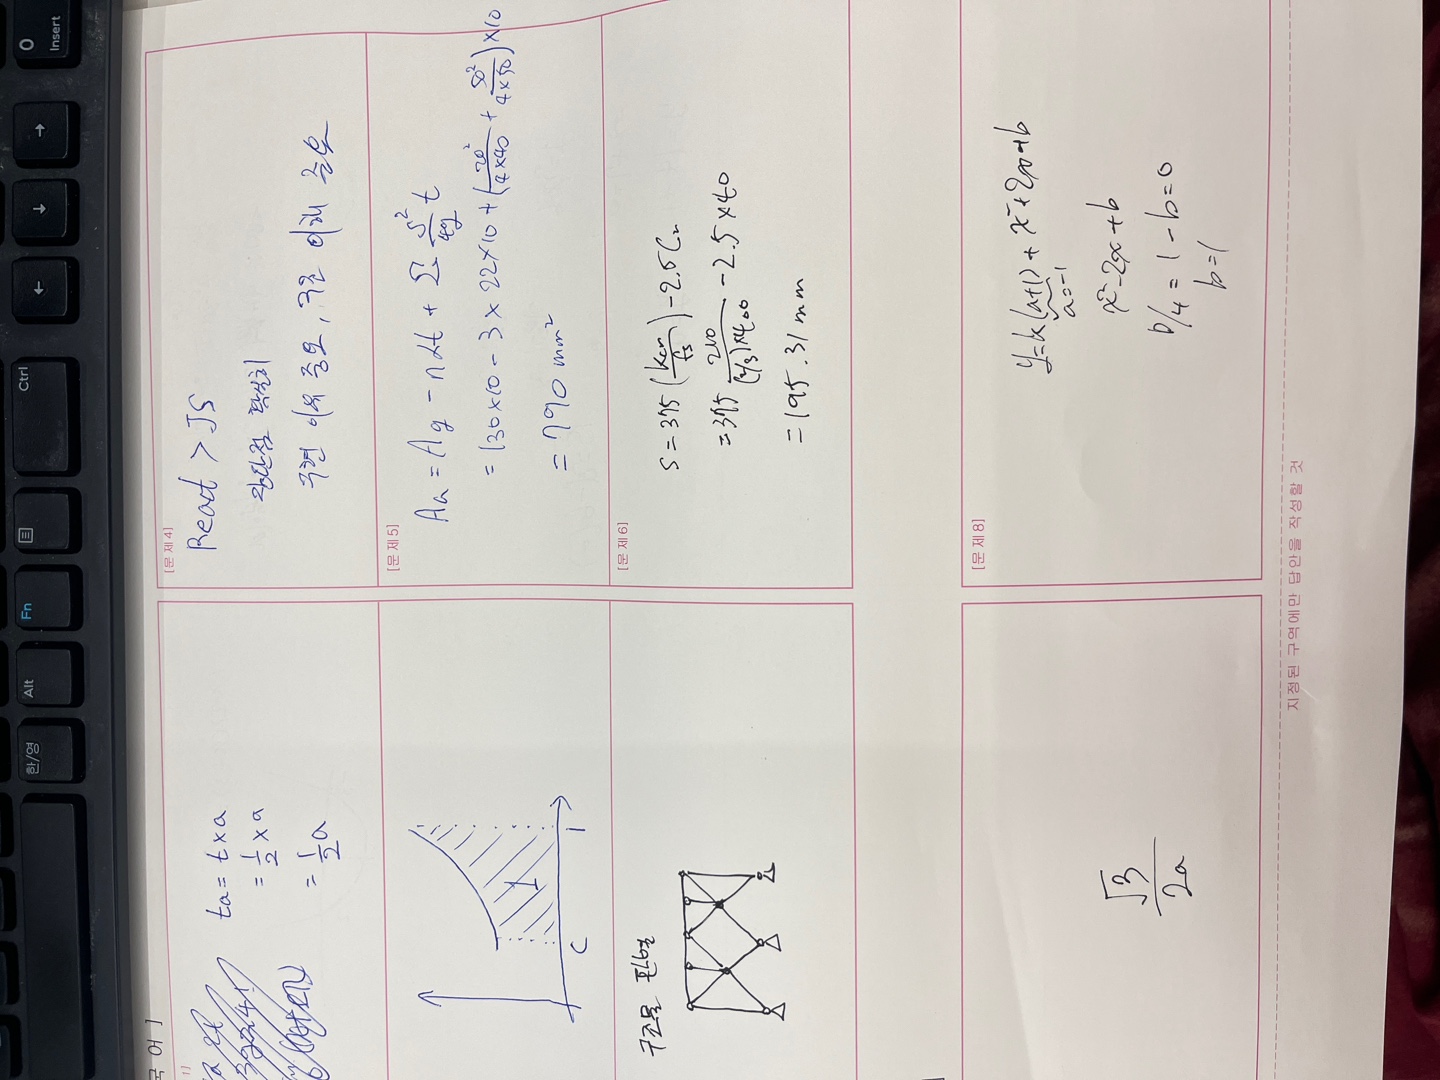 한/영
Alt
Fn
Ctrl
←
↓
→
0
Insert
국 어 ]
1]
ta = t×a
= 1/2 ×a
= 1/2 a
[문 제4]
React > JS
장단점 확실히
구현 이유 중요, 구조 이해 중요
1
C
1
[문 제5]
An = Ag - ndt + Σ S²/4g t
= 130×10 - 3×22×10 + (20²/4×40 + 50²/4×50)×10
= 790 mm²
구조물 판별
[문 제6]
S = 375 (kcr/fs) - 2.5Cc
= 375 210/(2/3)×400 - 2.5×40
= 195.31 mm
√3/2a
[문 제8]
y=k(a+1) + x²+2ax+b
a=-1
x²-2x+b
D/4 = 1-b=0
b=1
지정된 구역에만 답안을 작성할 것